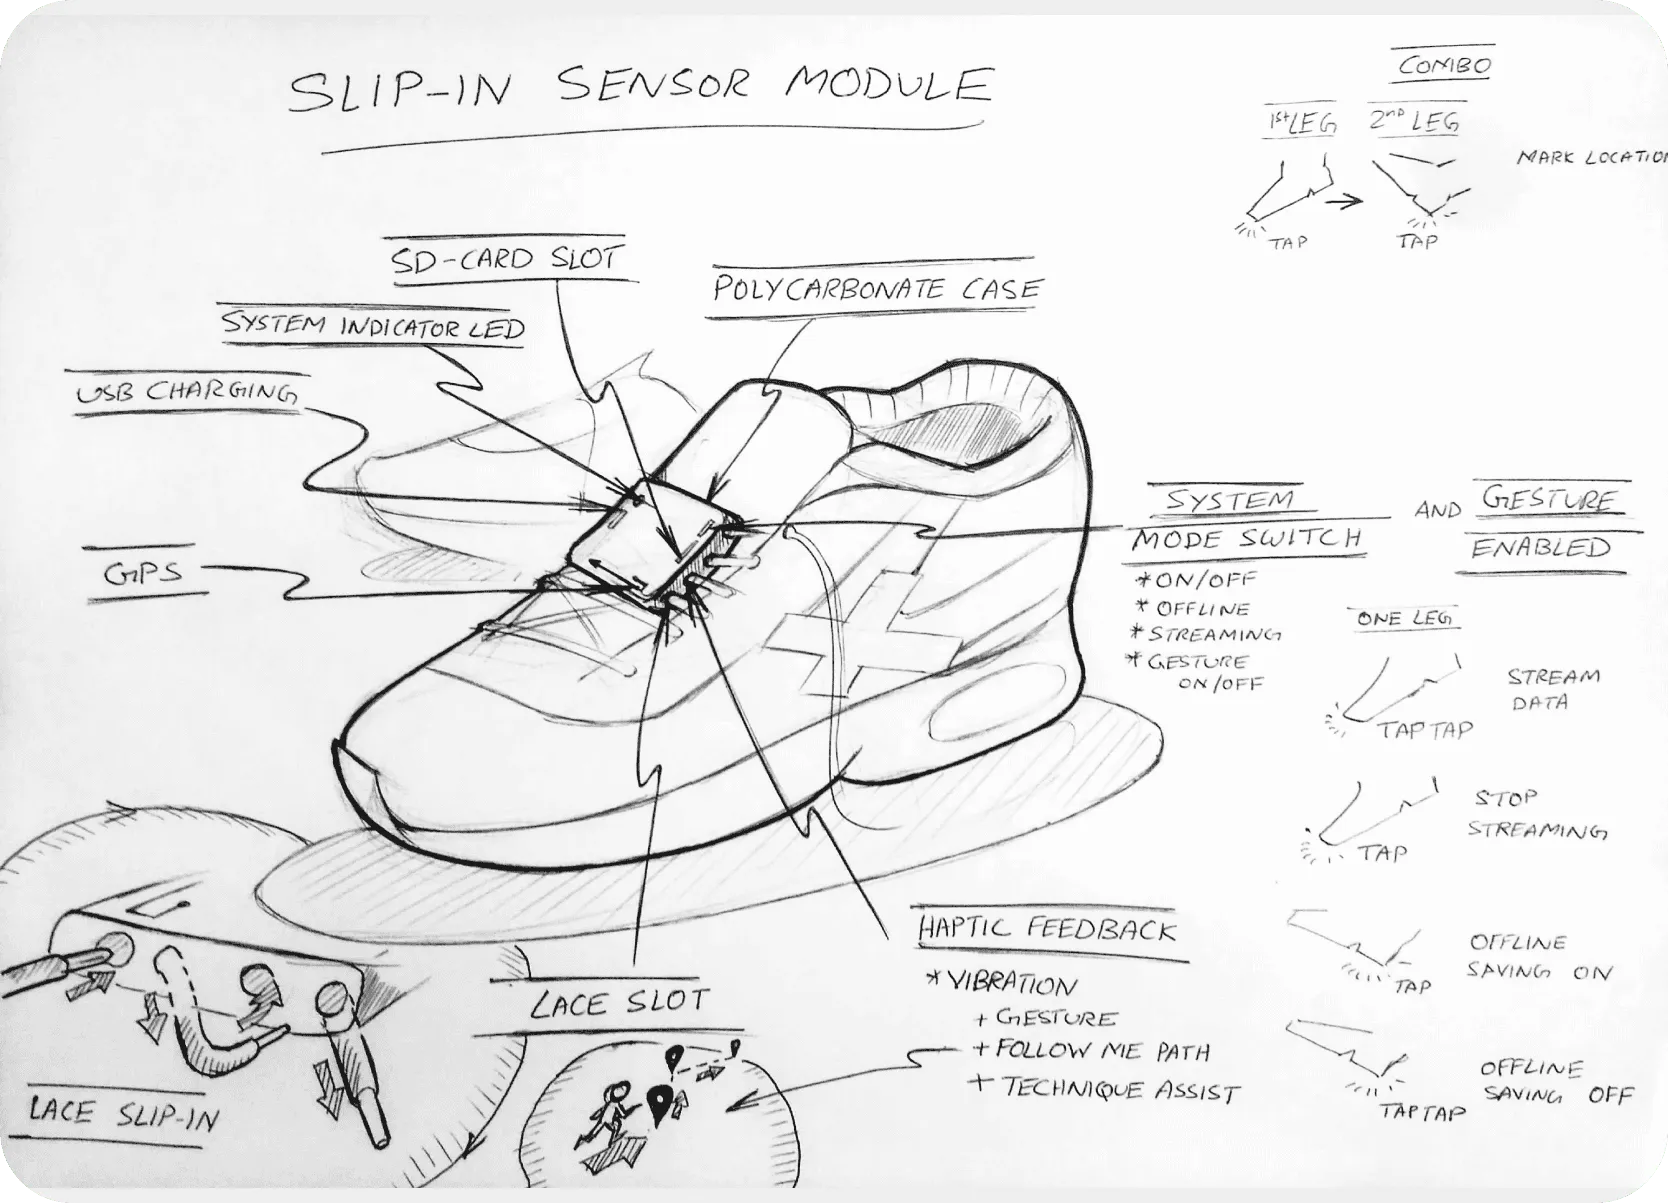 SLIP-IN SENSOR MODULE
COMBO
1st LEG
2nd LEG
MARK LOCATION
TAP
TAP
SD-CARD SLOT
POLYCARBONATE CASE
SYSTEM INDICATOR LED
USB CHARGING
GPS
SYSTEM
MODE SWITCH
AND GESTURE
ENABLED
* ON/OFF
* OFFLINE
* STREAMING
* GESTURE
ON/OFF
ONE LEG
STREAM
DATA
TAP TAP
STOP
STREAMING
TAP
HAPTIC FEEDBACK
* VIBRATION
+ GESTURE
+ FOLLOW ME PATH
+ TECHNIQUE ASSIST
OFFLINE
SAVING ON
TAP
OFFLINE
SAVING OFF
TAP TAP
LACE SLOT
LACE SLIP-IN